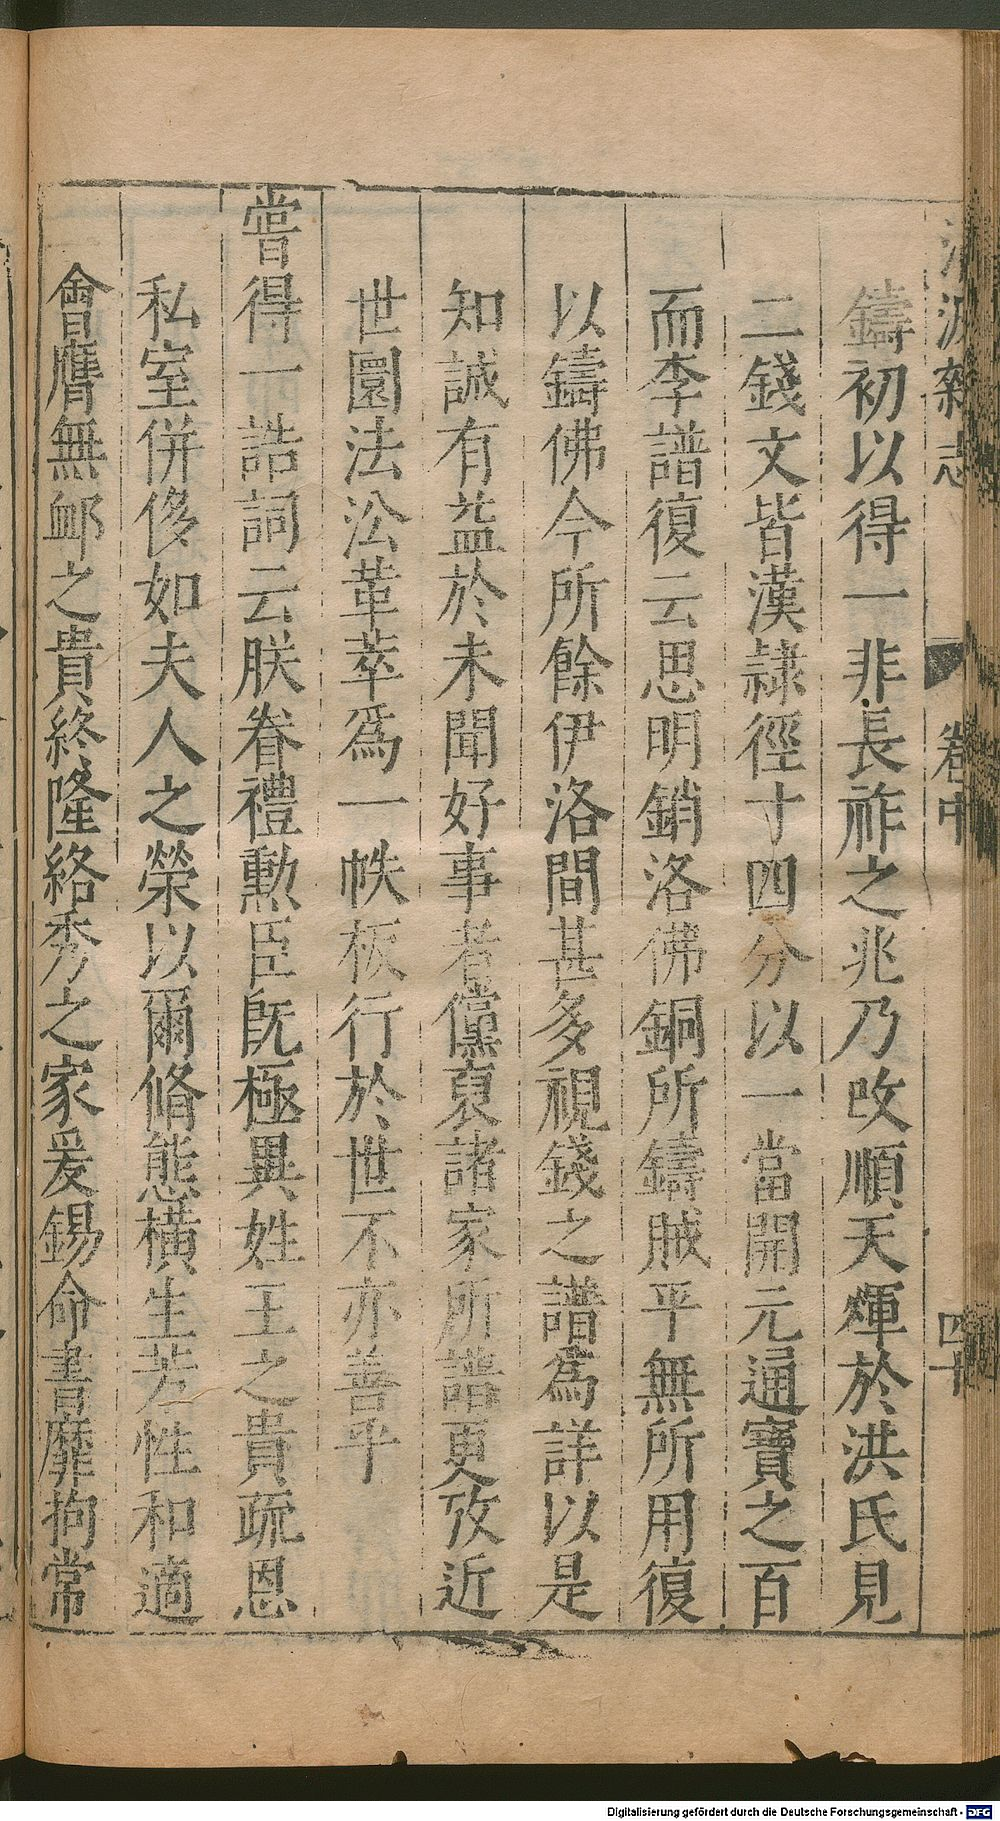 清波雜志
卷中
四十
鑄初以得一非長祚之兆乃改順天煇於洪氏見
二錢文皆漢隷徑寸四分以一當開元通寶之百
而李譜復云思明銷洛佛銅所鑄賊平無所用復
以鑄佛今所餘伊洛間甚多視錢之譜為詳以是
知誠有益於未聞好事者儻裒諸家所譜更攷近
世圜法㳂革萃爲一帙板行於世不亦善乎
嘗得一誥詞云朕眷禮勲臣旣極異姓王之貴疏恩
私室併侈如夫人之榮以爾脩態橫生芳性和適
會膺無䘏之貴終隆絡秀之家爰錫命書靡拘常
Digitalisierung gefördert durch die Deutsche Forschungsgemeinschaft - DFG